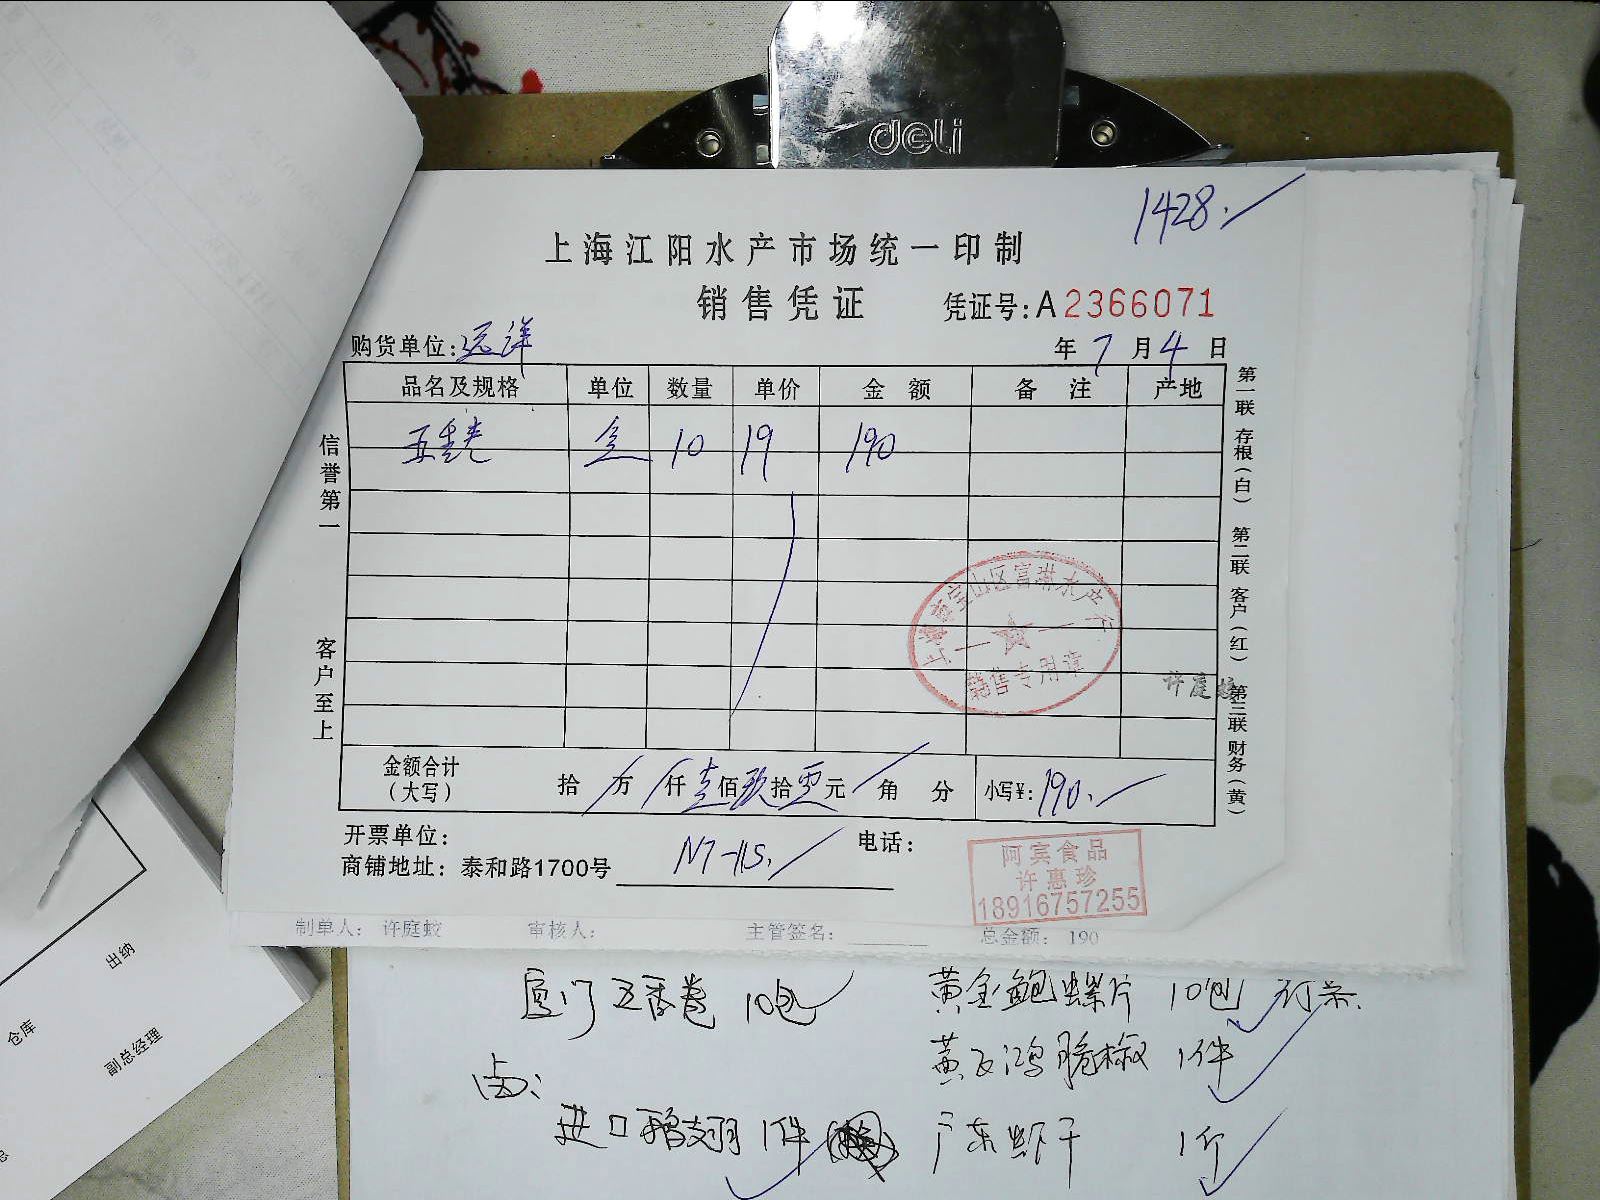 deli
1428.
上海江阳水产市场统一印制
销售凭证 凭证号:A2366071
购货单位:远洋 年7月4日
品名及规格 单位 数量 单价 金额 备注 产地
五香卷 包 10 19 190
信誉第一
客户至上
第一联 存根(白) 第二联 客户(红) 第三联 财务(黄)
上海市宝山区富淋水产行
销售专用章
许庭蛟
金额合计(大写) 拾 万 仟 壹佰 玖拾 零元 角 分 小写¥:190.
开票单位: 电话:
商铺地址:泰和路1700号 N7-115.
阿宾食品
许惠珍
18916757255
制单人: 许庭蛟 审核人: 主管签名: 总金额: 190
厦门五香卷 10包 黄金鲍螺片 10包
黄飞鸿脆椒 1件
卤:
进口鸭翅 1件 广东虾干 1斤
出纳
仓库
副总经理